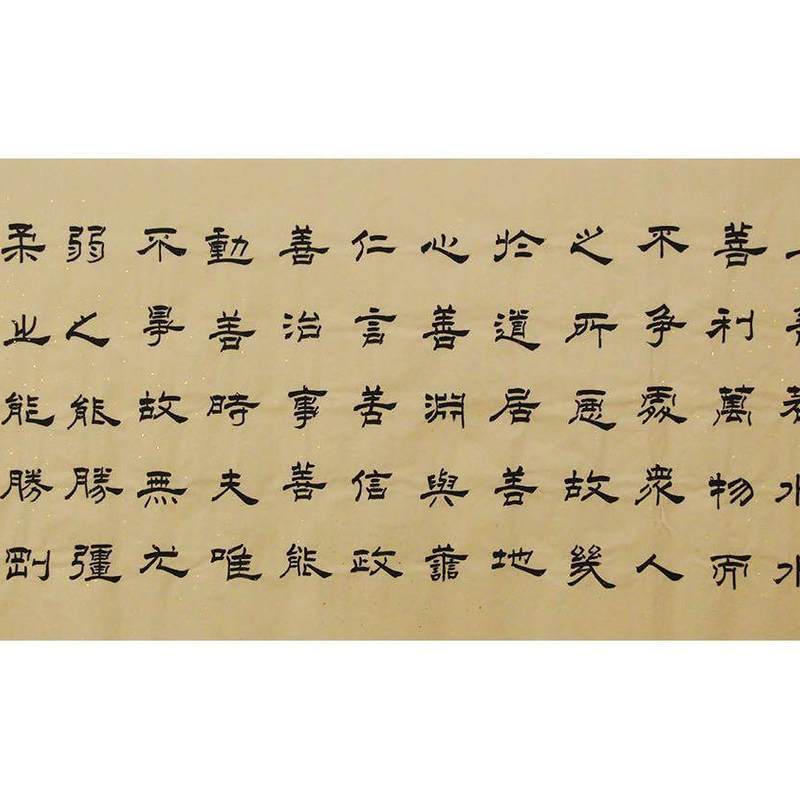 上善若水水
善利萬物而
不爭處衆人
之所惡故幾
於道居善地
心善淵與譱
仁言善信政
善治事善能
動善時夫唯
不爭故無尤
弱之能勝彊
柔之能勝剛